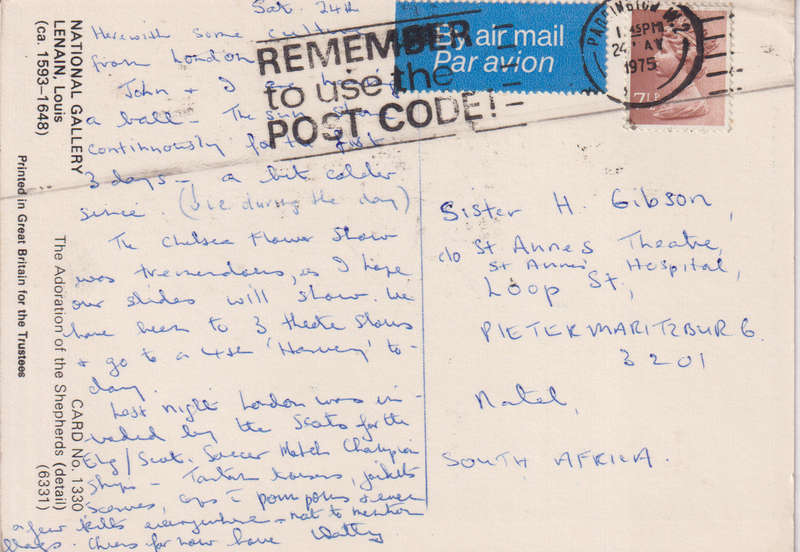 NATIONAL GALLERY
LENAIN, Louis
(ca. 1593–1648)
Printed in Great Britain for the Trustees
The Adoration of the Shepherds (detail)
CARD No. 1330
(6331)
Sat. 24th
Herewith some
from London
John + I are
a ball - The sun
continuously for the first
3 days - a bit colder
since. (during the day)
The Chelsea Flower Show
was tremendous, as I hope
our slides will show. We
have been to 3 theatre shows
+ go to a 4th 'Harvey' to-
day.
Last night London was in-
vaded by the Scots for the
Eng/Scot. Soccer Match Champion
ships - Tartan trousers, jackets
Scarves, caps - pom poms + even
a few kilts everywhere + not to mention
flags. Cheers for now
REMEMBER
to use the
POST CODE!
By air mail
Par avion
PADDINGTON W.2
1.45PM
24 MAY
1975
7½P
Sister H. Gibson,
c/o St Annes Theatre,
St Annes Hospital,
Loop St,
PIETERMARITZBURG.
3201
Natal,
SOUTH AFRICA.